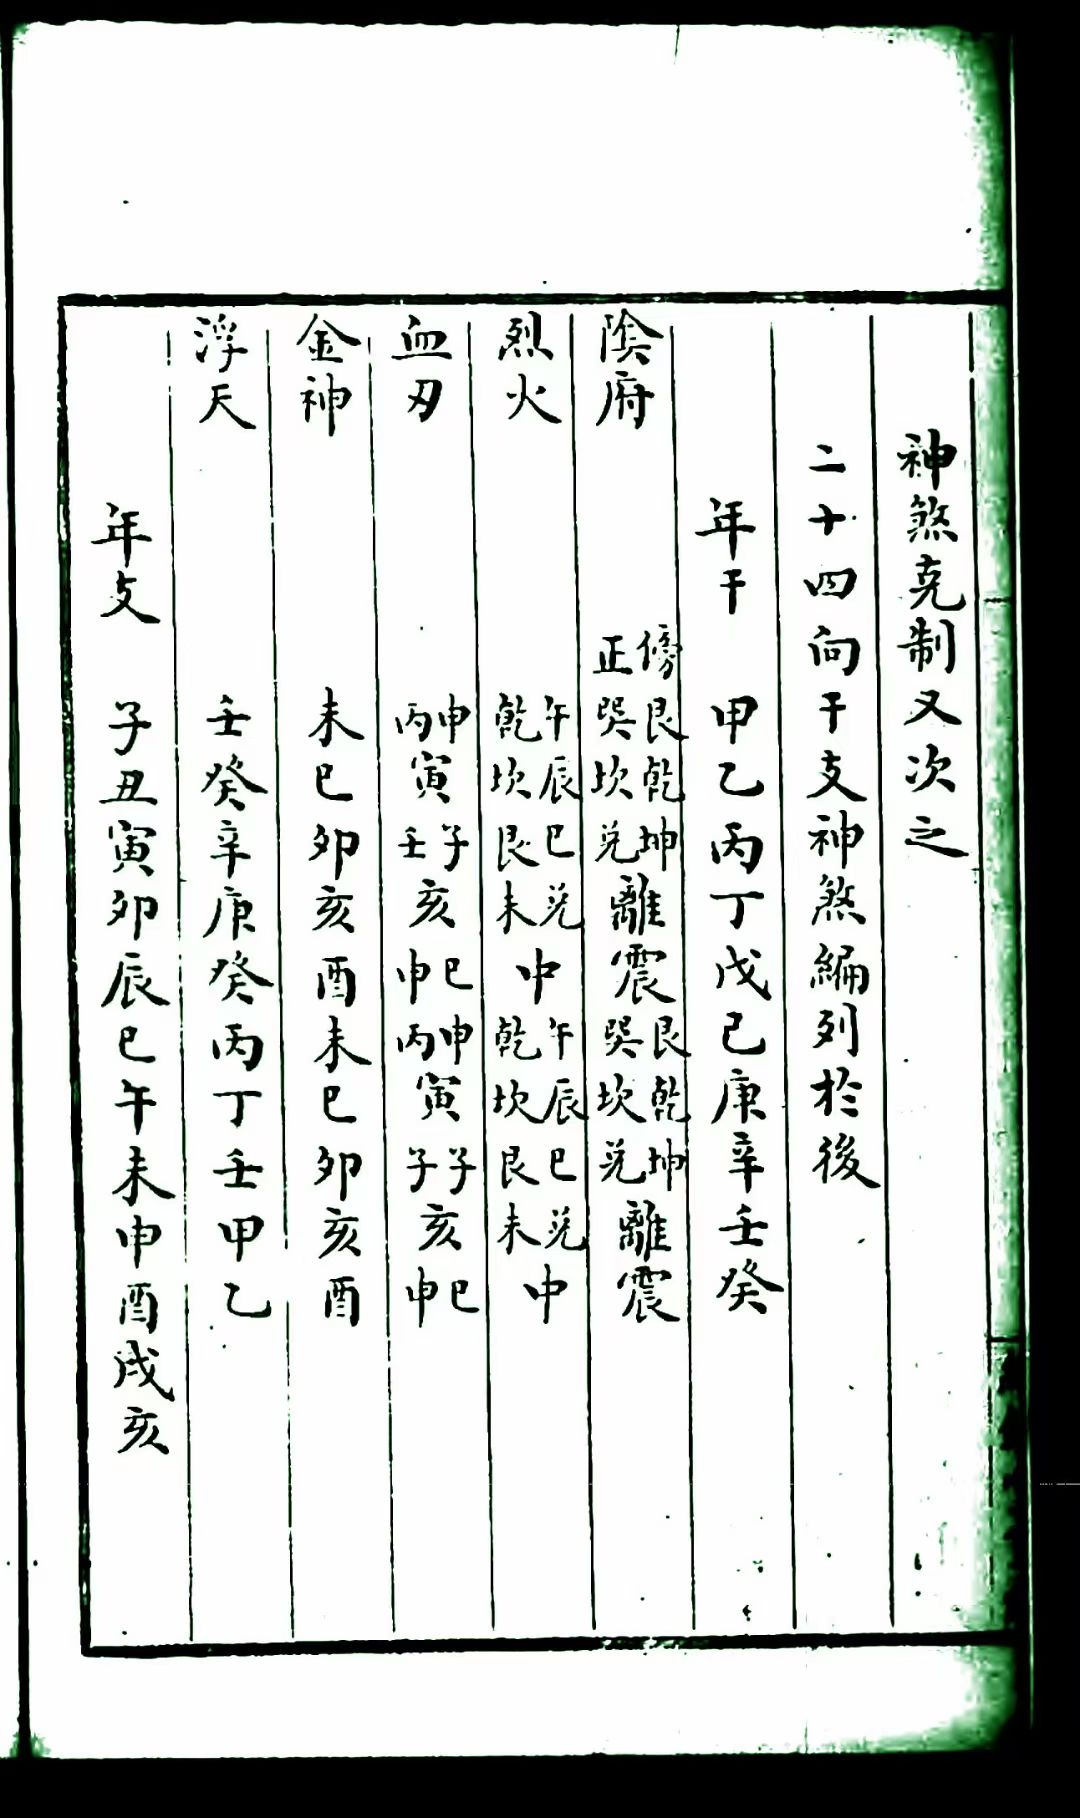 神煞克制又次之
二十四向干支神煞編列於後
年干 甲乙丙丁戊己庚辛壬癸
陰府 傍正 艮巽 乾坎 坤兑 離 震 艮巽 乾坎 坤兑 離 震
烈火 午乾 辰坎 巳艮 兑未 中 午乾 辰坎 巳艮 兑未 中
血刃 申丙 寅 子壬 亥 巳申 申丙 寅 子子 亥 巳申
金神 未巳卯亥酉未巳卯亥酉
浮天 壬癸辛庚癸丙丁壬甲乙
年支 子丑寅卯辰巳午未申酉戌亥